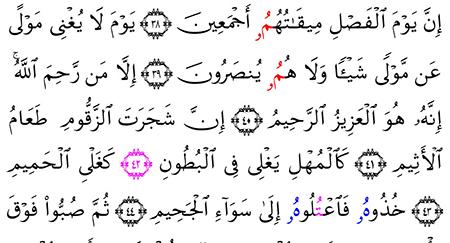 إِنَّ يَوْمَ ٱلْفَصْلِ مِيقَٰتُهُمُۥ أَجْمَعِينَ ٣٨ يَوْمَ لَا يُغْنِى مَوْلًى
عَن مَّوْلًى شَيْـًٔا وَلَا هُمُۥ يُنصَرُونَ ٣٩ إِلَّا مَن رَّحِمَ ٱللَّهُۚ
إِنَّهُۥ هُوَ ٱلْعَزِيزُ ٱلرَّحِيمُ ٤٠ إِنَّ شَجَرَتَ ٱلزَّقُّومِ طَعَامُ
ٱلْأَثِيمِ ٤١ كَٱلْمُهْلِ يَغْلِى فِى ٱلْبُطُونِ ٤٢ كَغَلْىِ ٱلْحَمِيمِ
٤٣ خُذُوهُۥ فَٱعْتُلُوهُۥ إِلَىٰ سَوَآءِ ٱلْجَحِيمِ ٤٤ ثُمَّ صُبُّوا۟ فَوْقَ